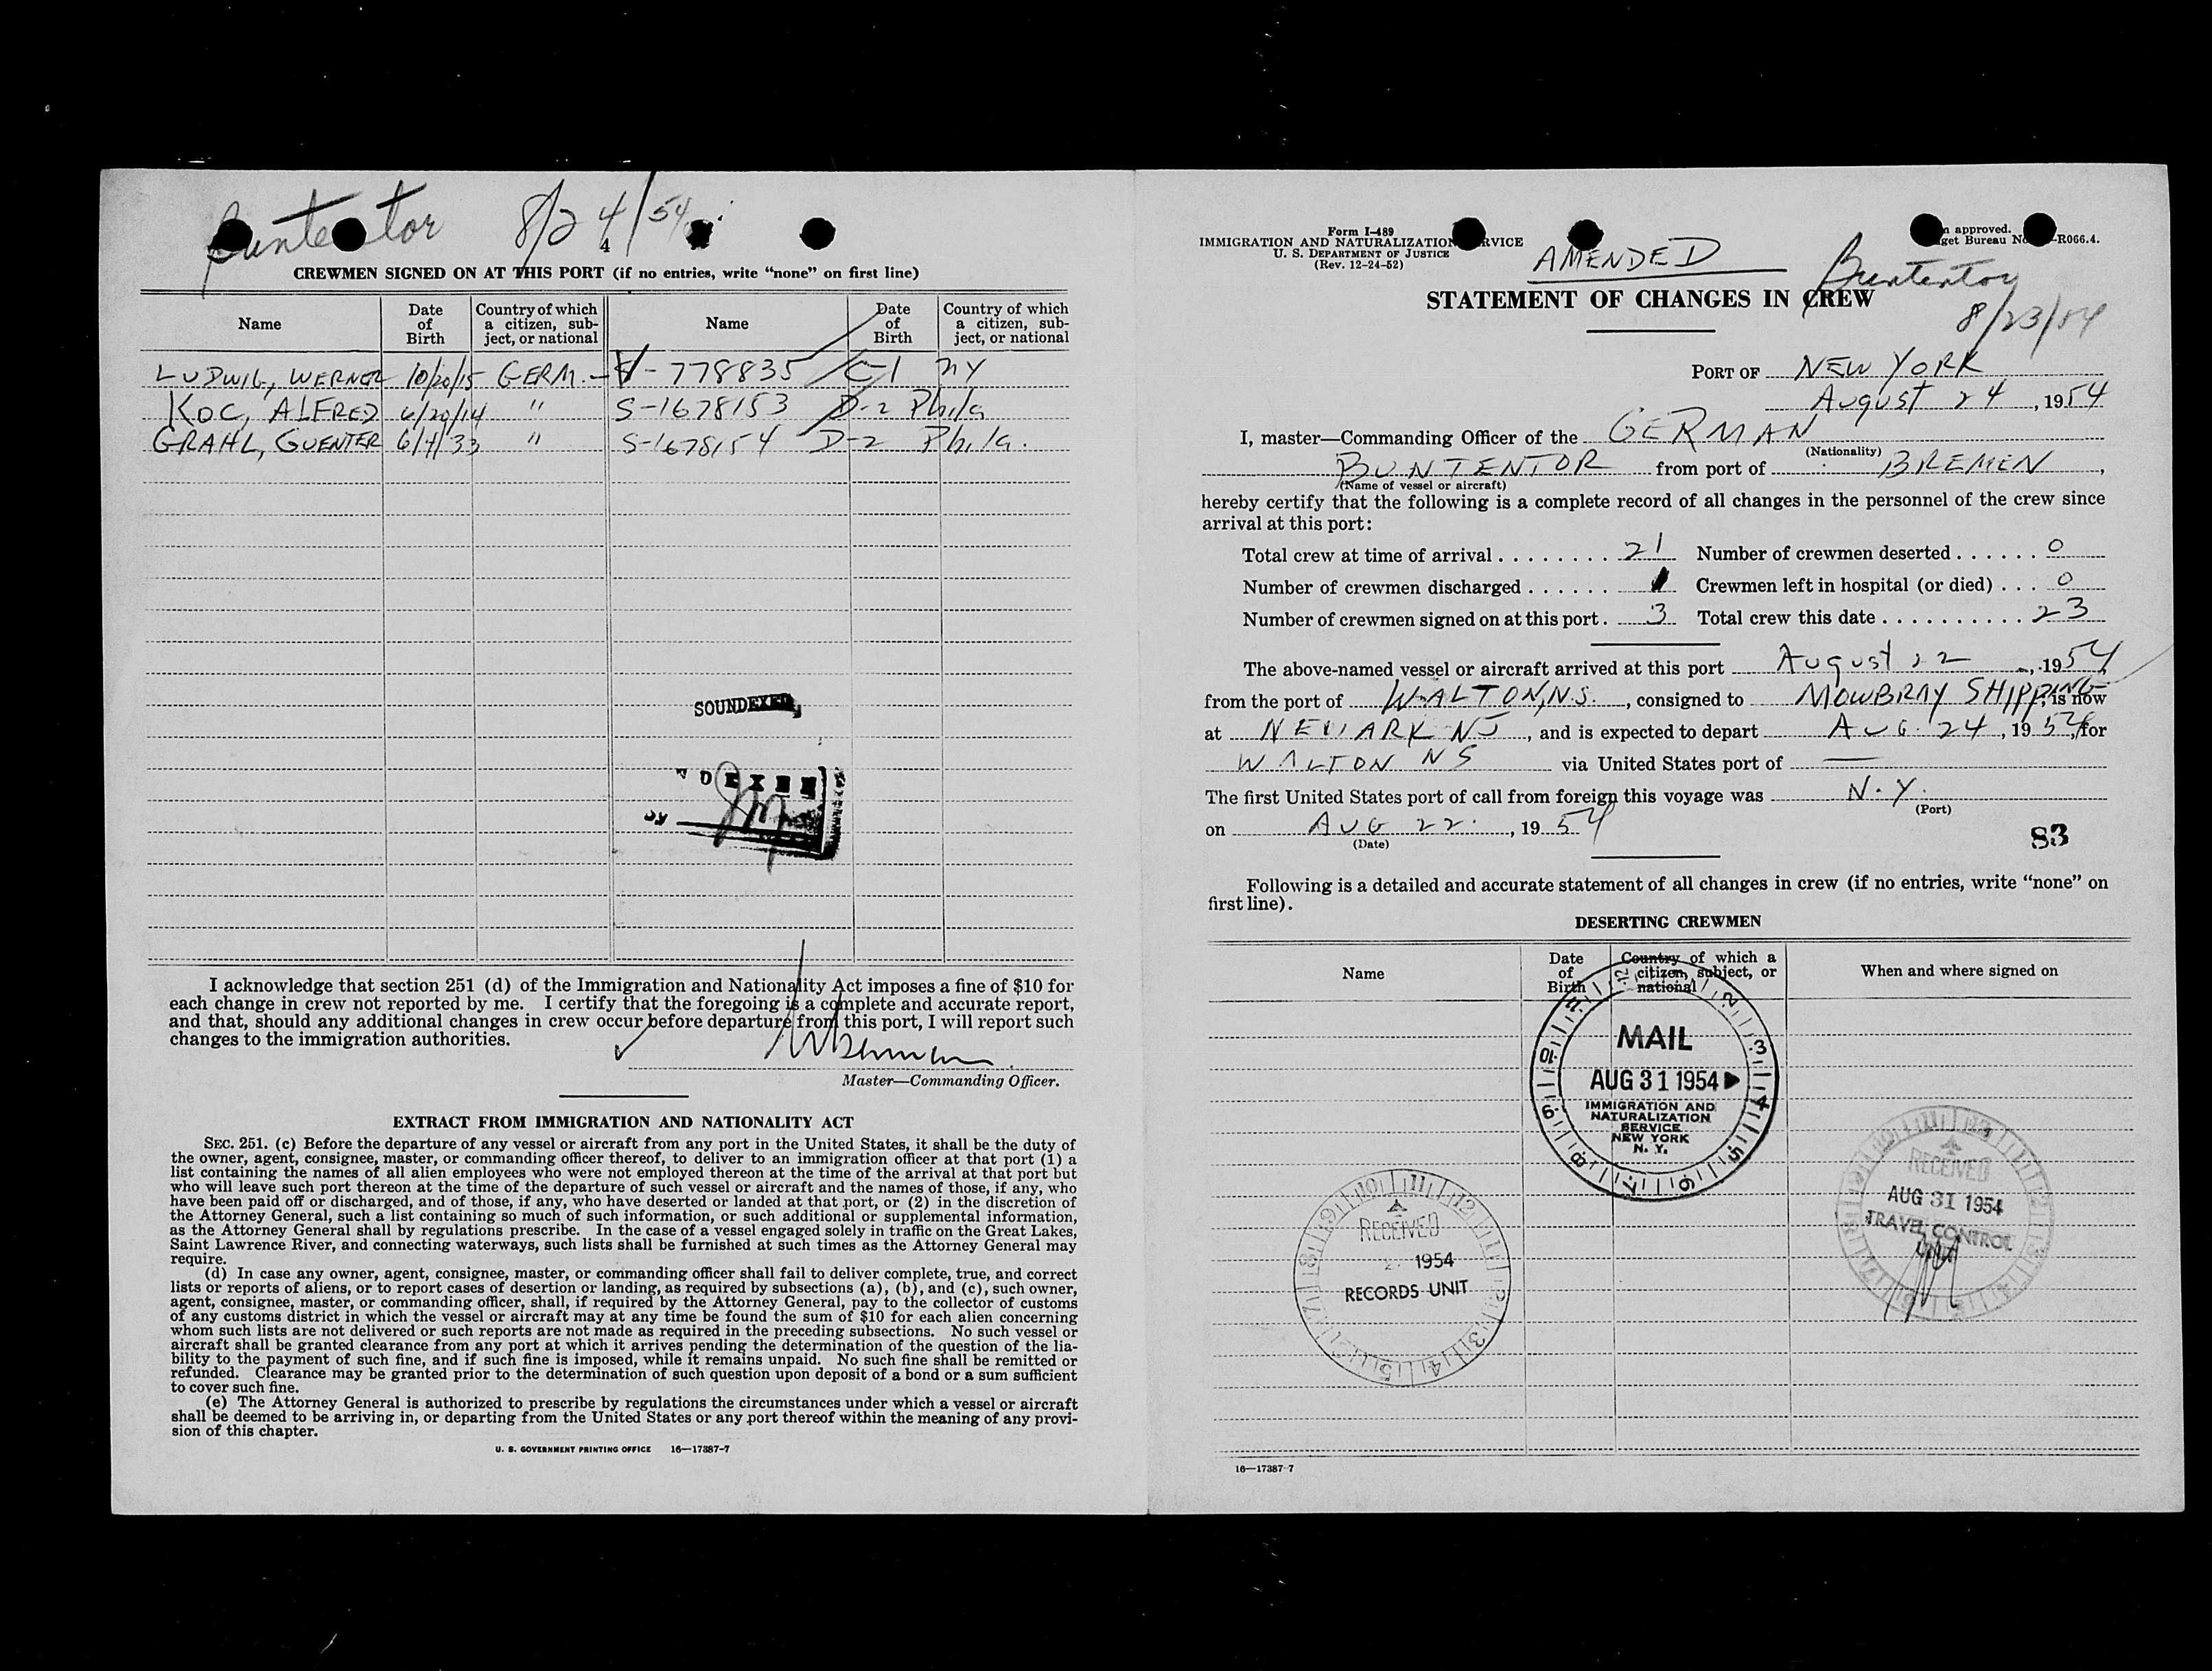 Buntentor 8/24/54
4
CREWMEN SIGNED ON AT THIS PORT (if no entries, write “none” on first line)
Name Date of Birth Country of which a citizen, subject, or national Name Date of Birth Country of which a citizen, subject, or national
LUDWIG, WERNER 10/20/15 GERM. - V-778835 C-1 NY
KOC, ALFRED 6/20/14 " S-1678153 D-2 Phila
GRAHL, GUENTER 6/7/33 " S-1678154 D-2 Phila.
SOUNDEXED
by
I acknowledge that section 251 (d) of the Immigration and Nationality Act imposes a fine of $10 for
each change in crew not reported by me. I certify that the foregoing is a complete and accurate report,
and that, should any additional changes in crew occur before departure from this port, I will report such
changes to the immigration authorities.
Master—Commanding Officer.
EXTRACT FROM IMMIGRATION AND NATIONALITY ACT
SEC. 251. (c) Before the departure of any vessel or aircraft from any port in the United States, it shall be the duty of
the owner, agent, consignee, master, or commanding officer thereof, to deliver to an immigration officer at that port (1) a
list containing the names of all alien employees who were not employed thereon at the time of the arrival at that port but
who will leave such port thereon at the time of the departure of such vessel or aircraft and the names of those, if any, who
have been paid off or discharged, and of those, if any, who have deserted or landed at that port, or (2) in the discretion of
the Attorney General, such a list containing so much of such information, or such additional or supplemental information,
as the Attorney General shall by regulations prescribe. In the case of a vessel engaged solely in traffic on the Great Lakes,
Saint Lawrence River, and connecting waterways, such lists shall be furnished at such times as the Attorney General may
require.
(d) In case any owner, agent, consignee, master, or commanding officer shall fail to deliver complete, true, and correct
lists or reports of aliens, or to report cases of desertion or landing, as required by subsections (a), (b), and (c), such owner,
agent, consignee, master, or commanding officer, shall, if required by the Attorney General, pay to the collector of customs
of any customs district in which the vessel or aircraft may at any time be found the sum of $10 for each alien concerning
whom such lists are not delivered or such reports are not made as required in the preceding subsections. No such vessel or
aircraft shall be granted clearance from any port at which it arrives pending the determination of the question of the lia-
bility to the payment of such fine, and if such fine is imposed, while it remains unpaid. No such fine shall be remitted or
refunded. Clearance may be granted prior to the determination of such question upon deposit of a bond or a sum sufficient
to cover such fine.
(e) The Attorney General is authorized to prescribe by regulations the circumstances under which a vessel or aircraft
shall be deemed to be arriving in, or departing from the United States or any port thereof within the meaning of any provi-
sion of this chapter.
U. S. GOVERNMENT PRINTING OFFICE 16—17387-7
Form I-489
IMMIGRATION AND NATURALIZATION SERVICE
U. S. DEPARTMENT OF JUSTICE
(Rev. 12-24-52)
approved.
get Bureau No. -R066.4.
AMENDED
Buntentor
8/23/54
STATEMENT OF CHANGES IN CREW
PORT OF NEW YORK
August 24, 1954
I, master—Commanding Officer of the GERMAN
(Nationality)
BUNTENTOR from port of BREMEN,
(Name of vessel or aircraft)
hereby certify that the following is a complete record of all changes in the personnel of the crew since
arrival at this port:
Total crew at time of arrival . . . . . . . . 21 Number of crewmen deserted . . . . . . 0
Number of crewmen discharged . . . . . . 1 Crewmen left in hospital (or died) . . . 0
Number of crewmen signed on at this port. 3 Total crew this date . . . . . . . . . . . 23
The above-named vessel or aircraft arrived at this port August 22, 1954,
from the port of WALTON, N.S., consigned to MOWBRAY SHIPPING, is now
at NEWARK NJ, and is expected to depart AUG. 24, 1954, for
WALTON NS via United States port of —
The first United States port of call from foreign this voyage was N.Y.
(Port)
on AUG 22., 1954
(Date)
83
Following is a detailed and accurate statement of all changes in crew (if no entries, write “none” on
first line).
DESERTING CREWMEN
Name Date of Birth Country of which a citizen, subject, or national When and where signed on
MAIL
AUG 31 1954
IMMIGRATION AND
NATURALIZATION
SERVICE
NEW YORK
N. Y.
RECEIVED
AUG 31 1954
TRAVEL CONTROL
UNIT
RECEIVED
1954
RECORDS UNIT
16—17387-7